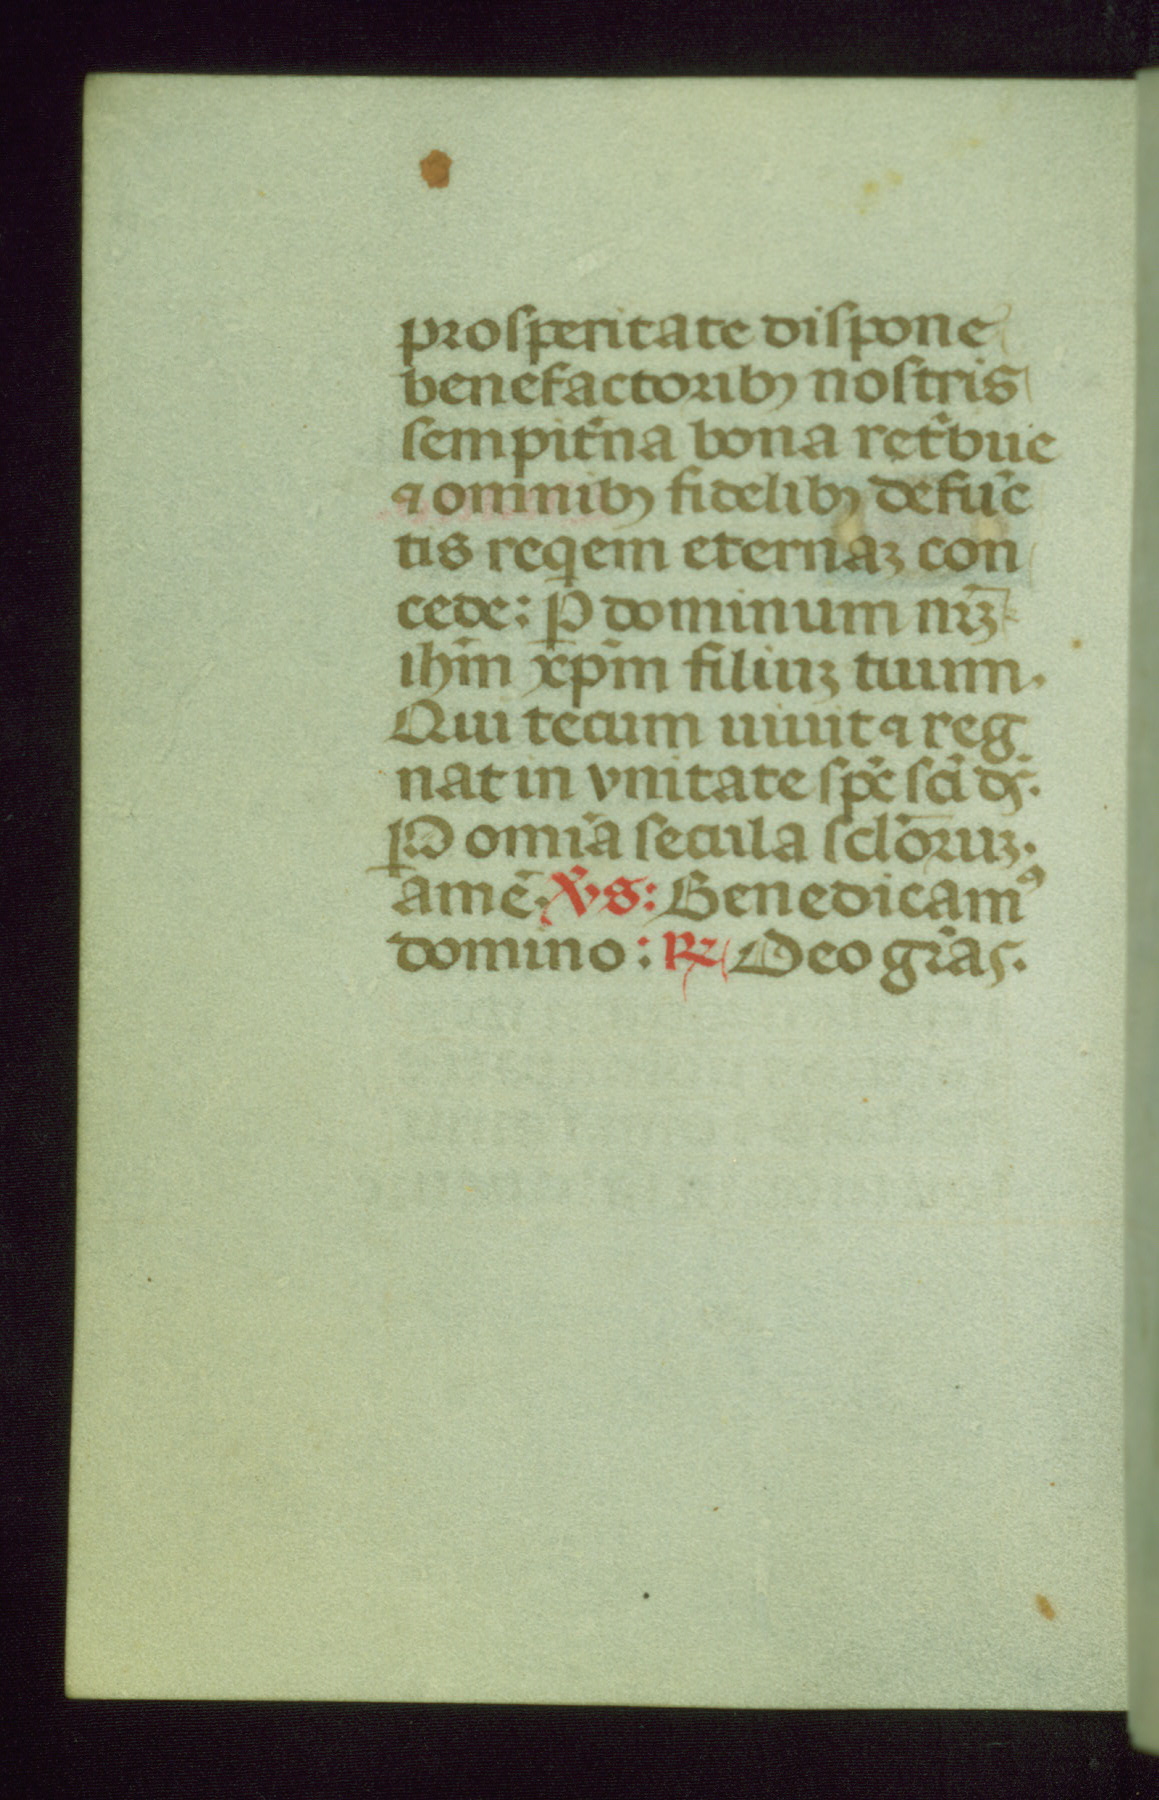 proſperitate diſpone
benefactoribꝰ noſtris
ſempit̃na bona ret̃bue
⁊ omnibꝰ fidelibꝰ defūc
tis reqem eternaꝫ con
cede: P dominum nr̃ꝫ
ihm̃ xp̃m filiuꝫ tuum.
Qui tecum uiuit ⁊ reg
nat in vnitate ſpc̃ ſcĩ dſ̃.
P omĩa secula ſclõruꝫ.
amẽ. V̓s: Benedicamꝰ
domino: R̷ Deo gr̃as.